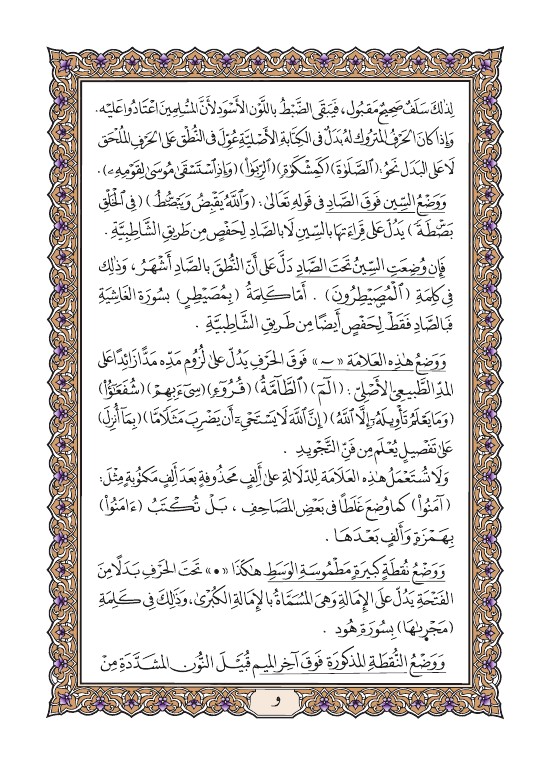 لِذلكَ سَلَفٌ صَحِيحٌ مَقبُول، فَيَبْقَى الضَّبْطُ باللَّونِ الأَسْوَدِ لأَنَّ المُسْلِمِينَ اعْتَادُوا عَلَيه.
وَإِذا كَانَ الحَرْفُ المَتْرُوكُ لَهُ بَدَلٌ في الكِتَابَةِ الأَصْلِيَّةِ عُوِّلَ في النُّطْقِ عَلى الحَرْفِ المُلْحَقِ
لَا عَلى البَدَلِ نَحوُ: (ٱلصَّلَوٰةَ) (كَمِشْكَوٰةٍ) (ٱلرِّبَوٰاْ) (وَإِذِ ٱسْتَسْقَىٰ مُوسَىٰ لِقَوْمِهِۦ).
وَوَضْعُ السِّينِ فَوقَ الصَّادِ في قَولِهِ تَعَالى: (وَٱللَّهُ يَقْبِضُ وَيَبْصُۜطُ) (فِي ٱلْخَلْقِ
بَصْۜطَةً) يَدُلُّ عَلى قِرَاءَتِها بِالسِّينِ لَا بِالصَّادِ لِحَفْصٍ مِن طَرِيقِ الشَّاطِبِيَّةِ.
فَإِن وُضِعَتِ السِّينُ تَحْتَ الصَّادِ دَلَّ عَلى أَنَّ النُّطْقَ بِالصَّادِ أَشْهَرُ، وَذَلِكَ
في كَلِمَةِ (ٱلْمُصَۣيْطِرُونَ). أَمَّا كَلِمَةُ (بِمُصَيْطِرٍ) بِسُورَةِ الغَاشِيَةِ
فَبِالصَّادِ فَقَطْ لِحَفْصٍ أَيْضًا مِن طَرِيقِ الشَّاطِبِيَّةِ.
وَوَضْعُ هٰذِهِ العَلَامَةِ « ٓ » فَوقَ الحَرْفِ يَدُلُّ عَلى لُزُومِ مَدِّهِ مَدًّا زَائِدًا عَلى
المَدِّ الطَّبِيعِيِّ الأَصْلِيِّ: (الٓمٓ) (ٱلطَّآمَّةُ) (قُرُوٓءٍ) (سِيٓءَ بِهِمْ) (شُفَعَٰٓؤُاْ)
(وَمَا يَعْلَمُ تَأْوِيلَهُۥٓ إِلَّا ٱللَّهُ) (إِنَّ ٱللَّهَ لَا يَسْتَحْيِۦٓ أَن يَضْرِبَ مَثَلًا مَّا) (بِمَآ أُنزِلَ)
عَلى تَفْصِيلٍ يُعْلَمُ مِن فَنِّ التَّجْوِيدِ.
وَلَا تُسْتَعْمَلُ هٰذِهِ العَلَامَةُ لِلدِّلَالَةِ عَلى أَلِفٍ مَحْذُوفَةٍ بَعْدَ أَلِفٍ مَكْتُوبَةٍ مِثْلُ:
(آمَنُواْ) كَمَا وُضِعَ غَلَطًا في بَعْضِ المَصَاحِفِ، بَلْ تُكْتَبُ (ءَامَنُواْ)
بِهَمْزَةٍ وَأَلِفٍ بَعْدَهَا.
وَوَضْعُ نُقْطَةٍ كَبِيرَةٍ مَطْمُوسَةِ الوَسَطِ هٰكَذَا «•» تَحْتَ الحَرْفِ بَدَلًا مِنَ
الفَتْحَةِ يَدُلُّ عَلى الإِمَالَةِ وَهِيَ المُسَمَّاةُ بِالإِمَالَةِ الكُبْرَى، وَذَلِكَ في كَلِمَةِ
(مَجْر۪ىٰهَا) بِسُورَةِ هُود.
وَوَضْعُ النُّقْطَةِ المَذْكُورَةِ فَوقَ آخِرِ المِيمِ قُبَيْلَ النُّونِ المُشَدَّدَةِ مِنْ
و